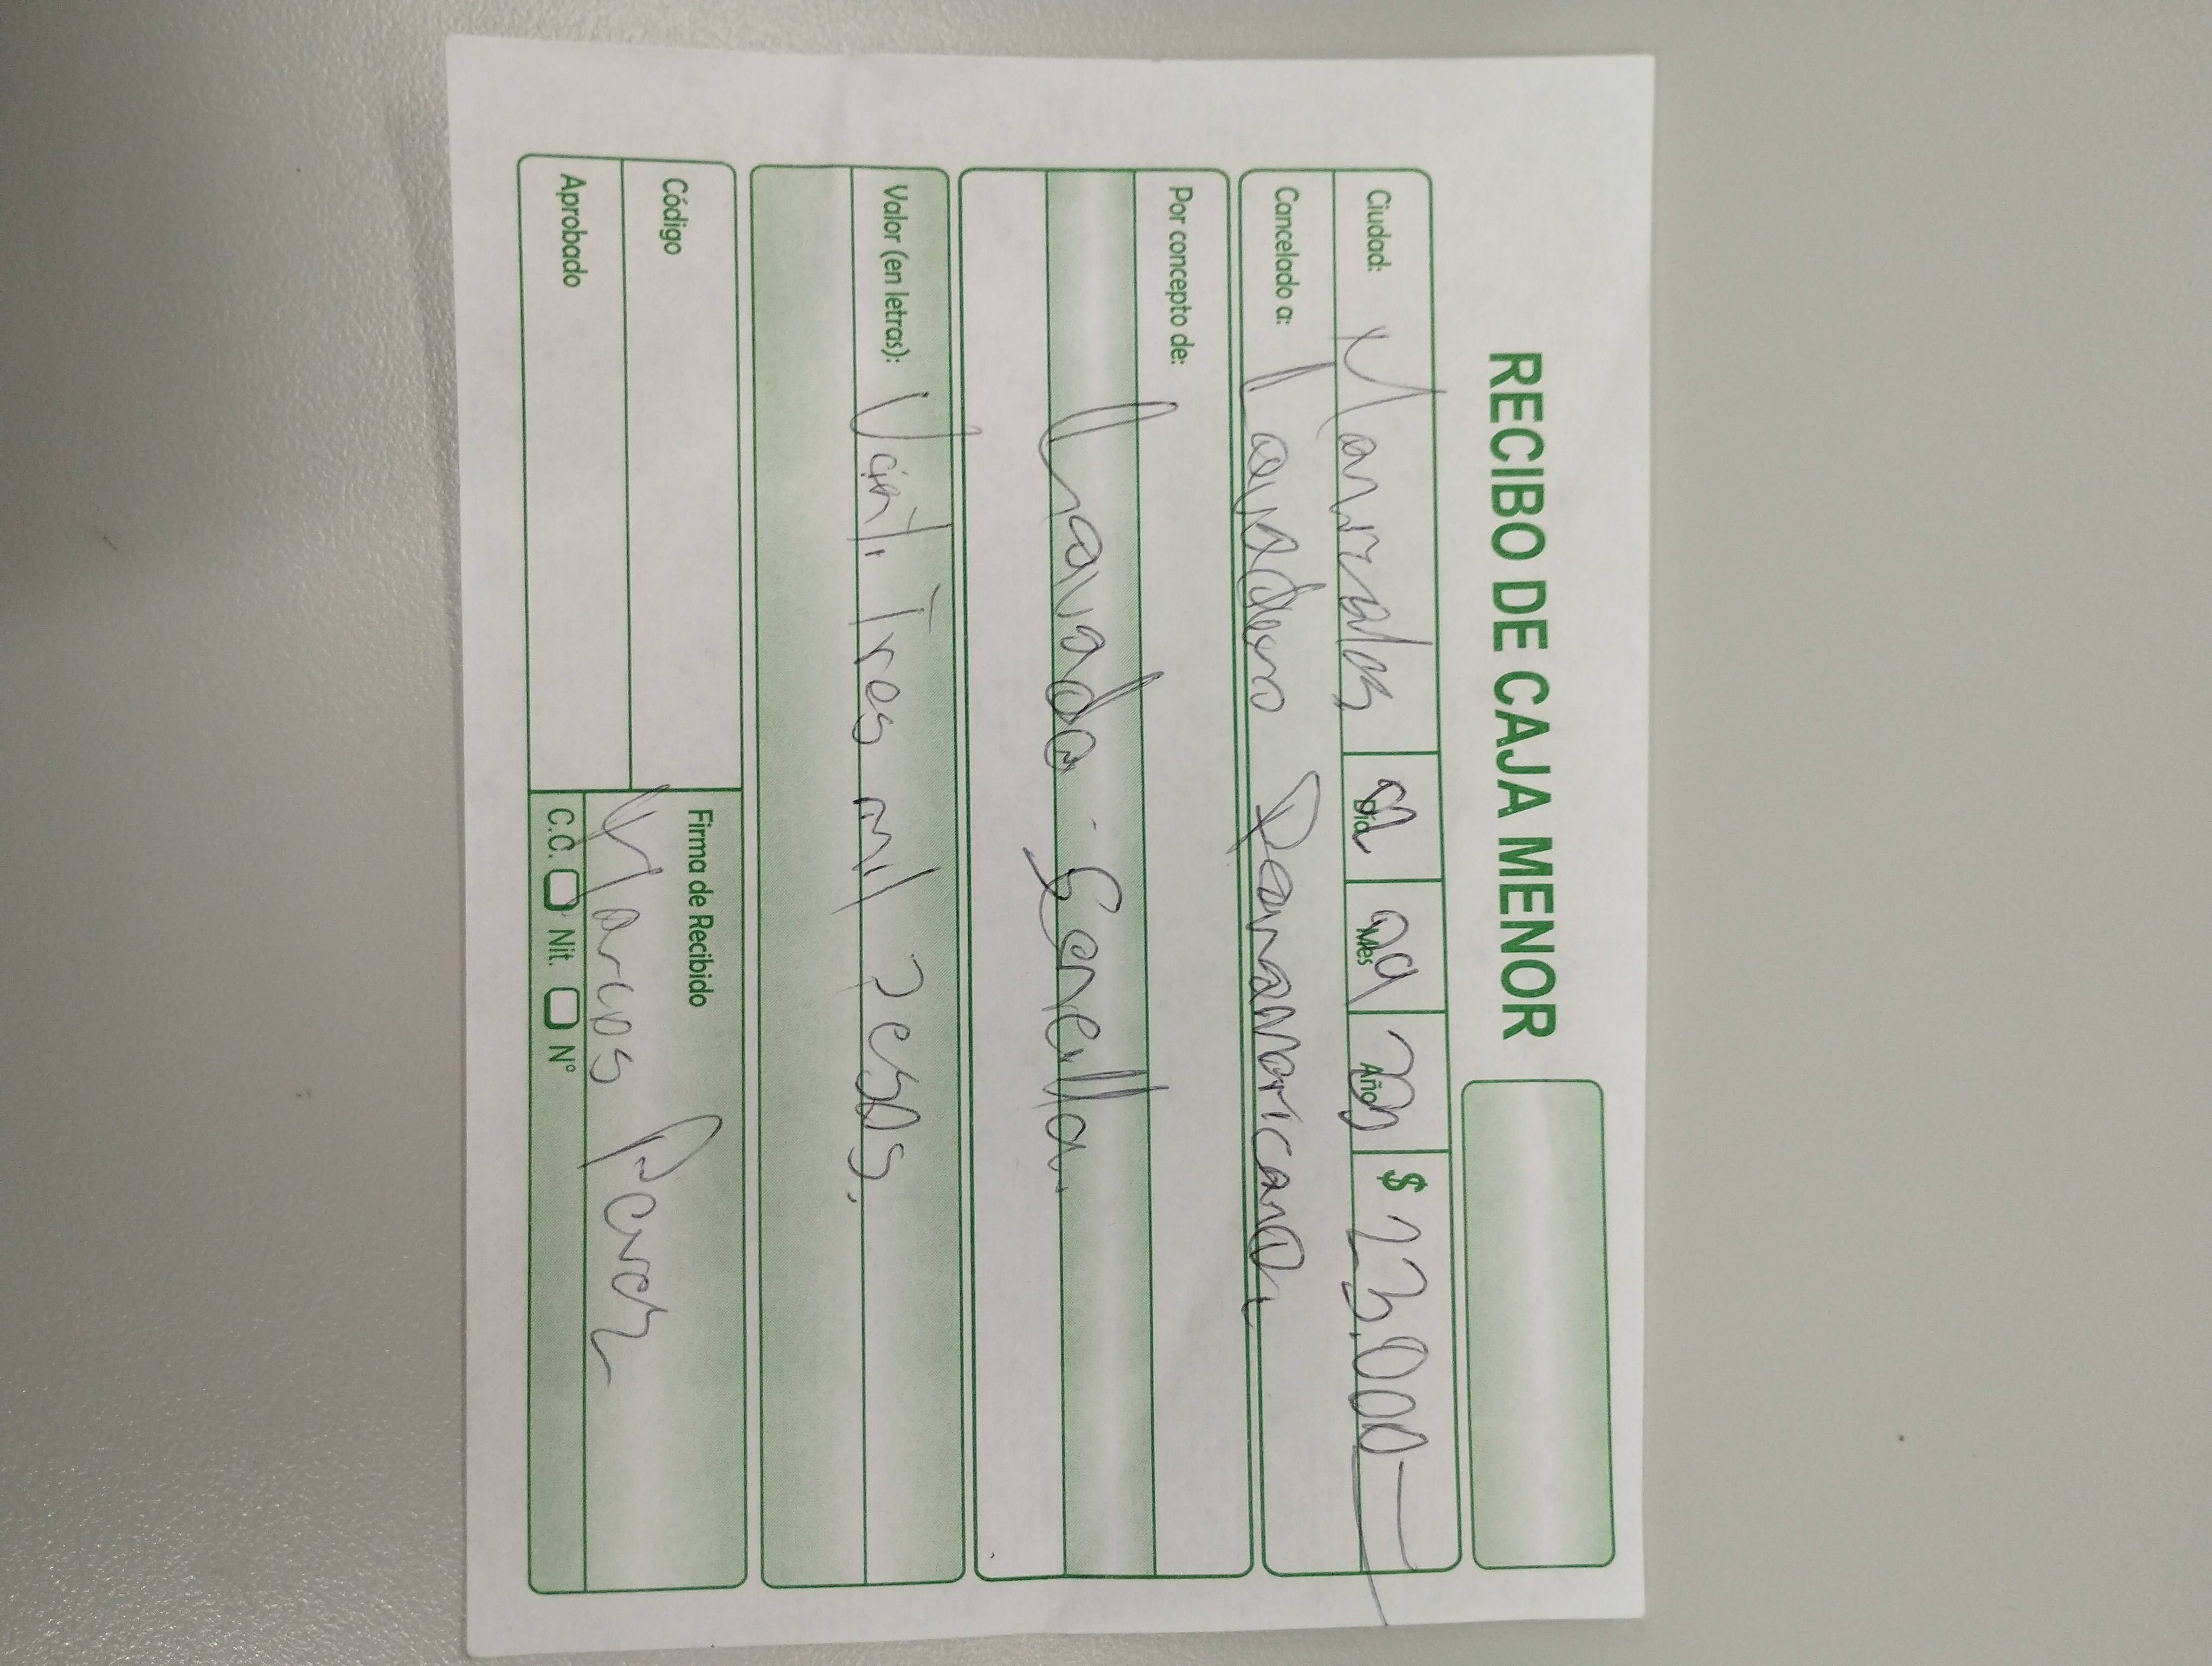 RECIBO DE CAJA MENOR
Ciudad: Manizales Día Mes 09 Año $ 23.000
Cancelado a: Lavadero Panamericana
Por concepto de:
Lavada Sencilla.
Valor (en letras): Veinti Tres mil Pesos.
Código
Aprobado
Firma de Recibido
Marcos Perez
C.C. Nit. N°